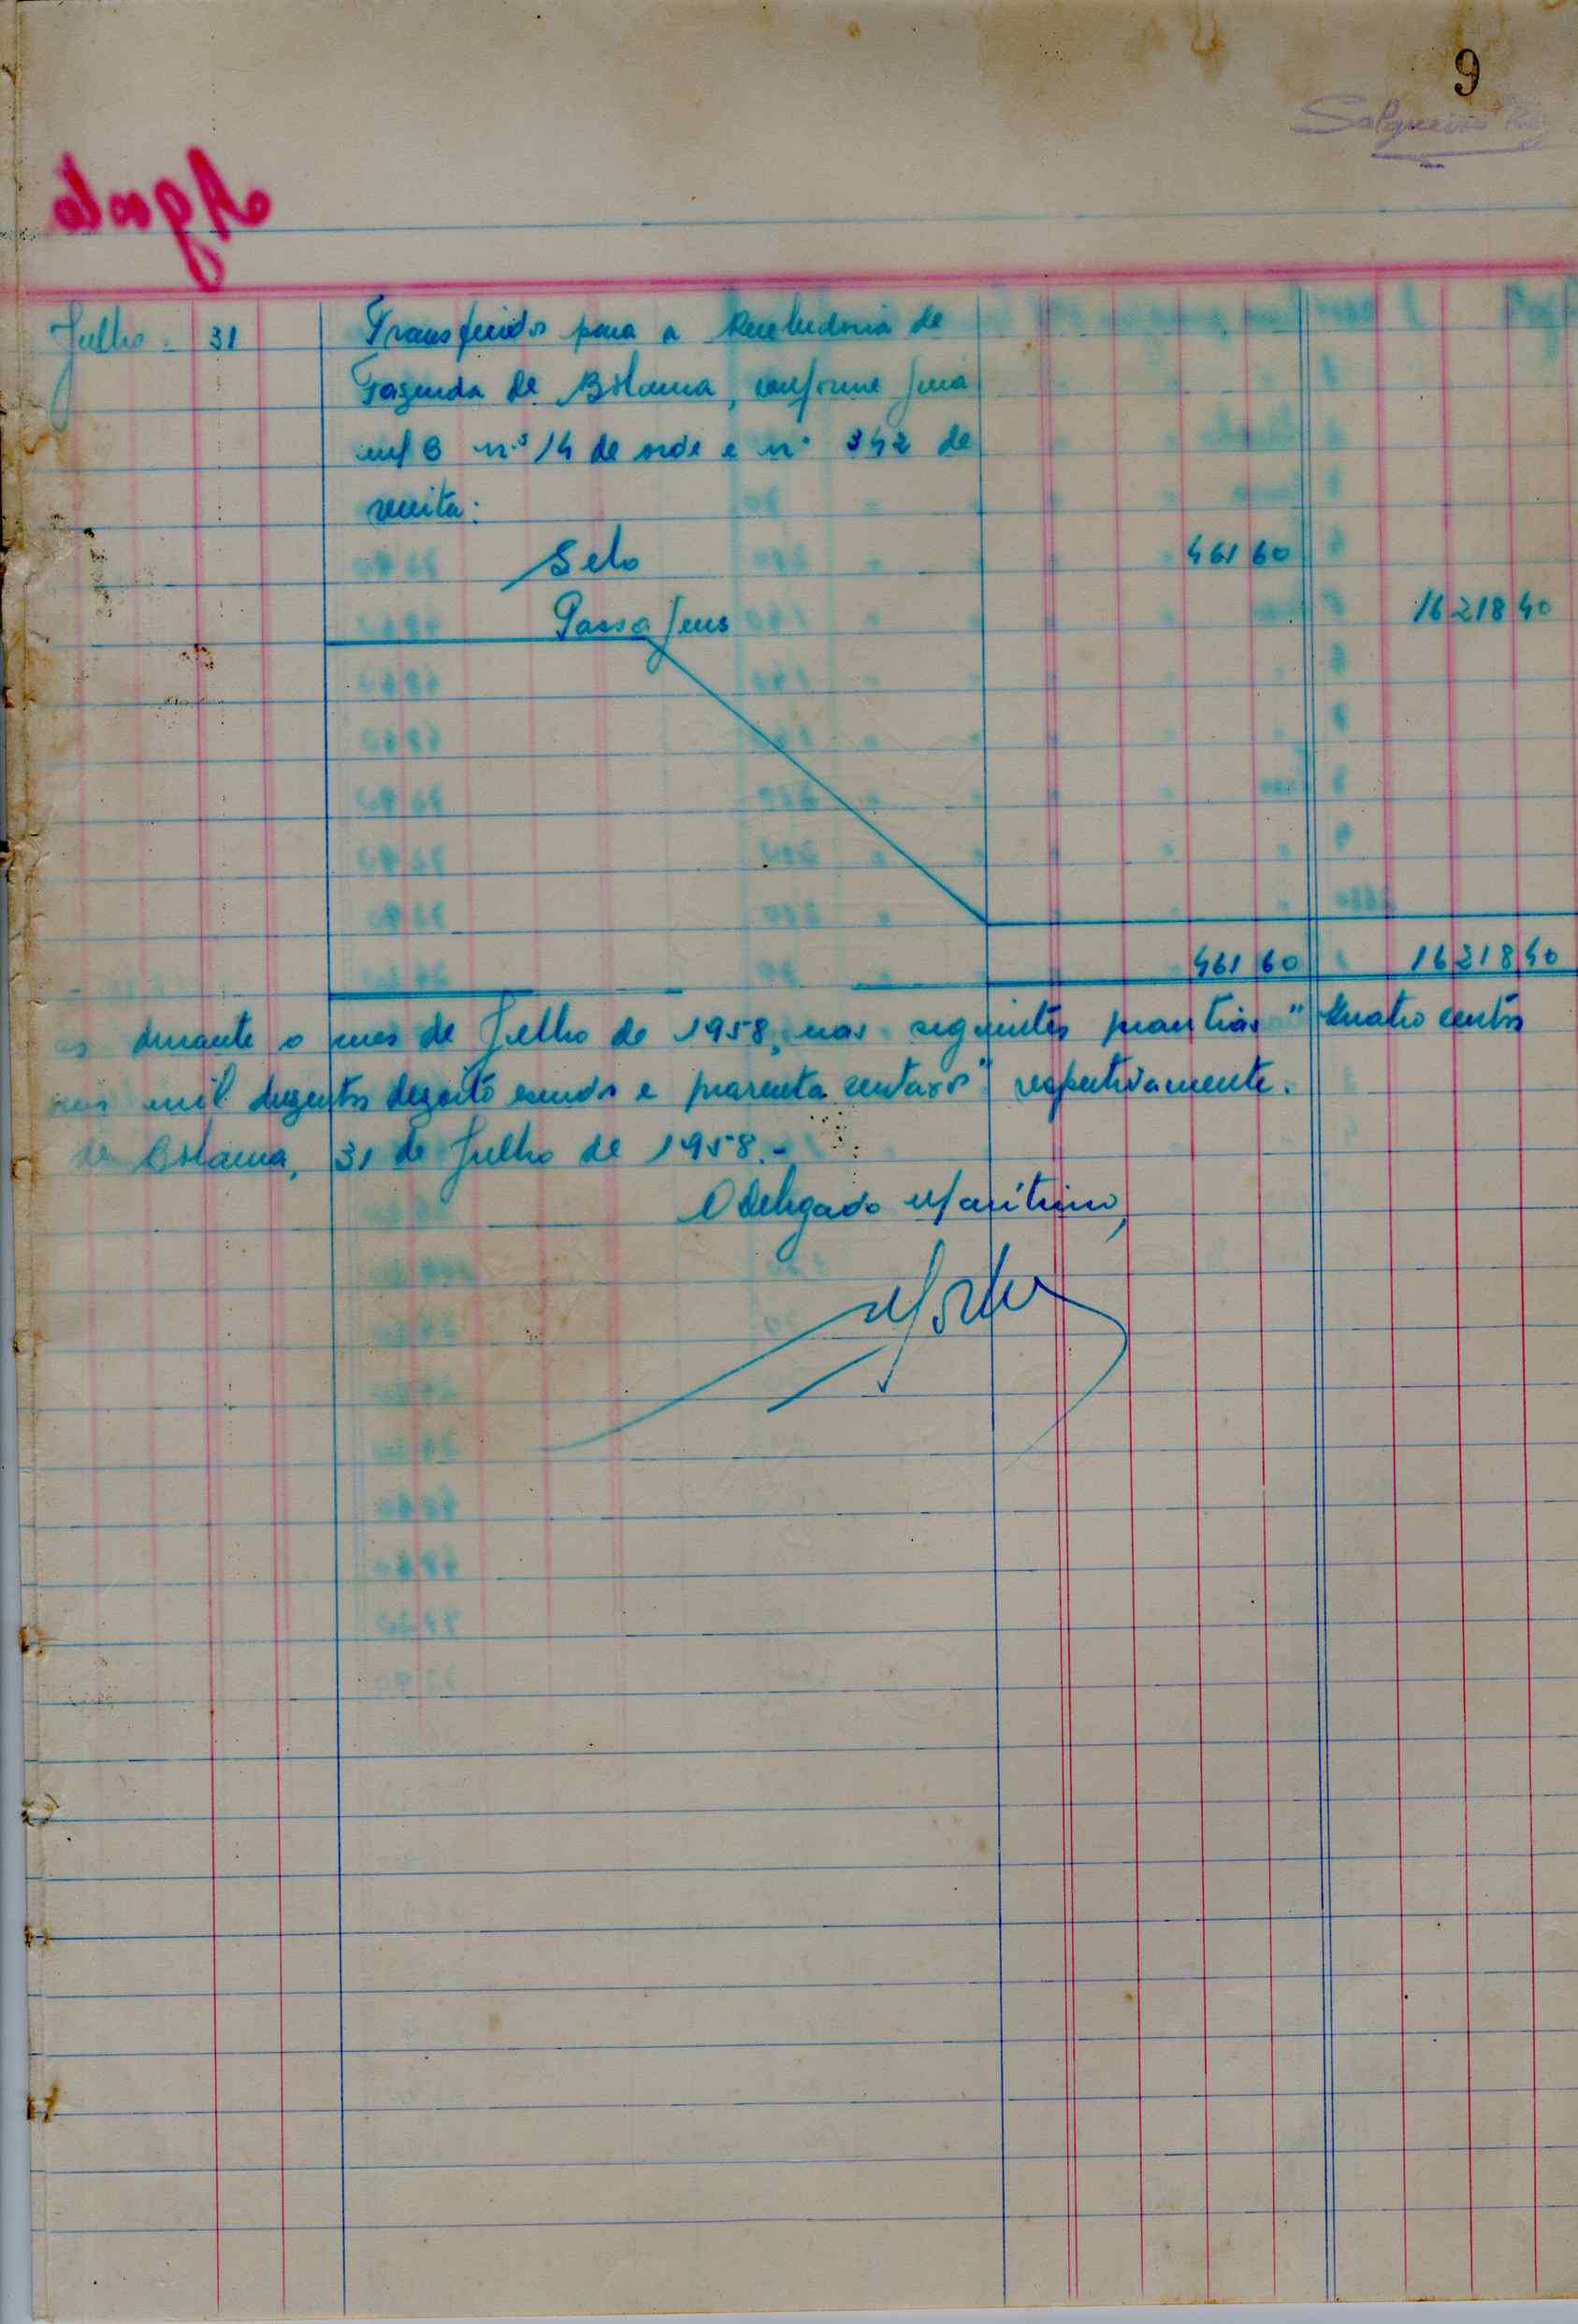 9
Salgueiro
Agosto
Julho - 31 Transferidos para a Recebedoria de
Fazenda de Bolama, conforme guia
M/B n.º 14 de orde e n.º 342 de
receita:
Selo 461 60
Passagens 16 218 40
461 60 16 218 40
durante o mes de Julho de 1958, nas seguintes quantias "Quatro centos
mil duzentos dezoito escudos e quarenta centavos" respectivamente.
de Bolama, 31 de Julho de 1958.-
O Delegado Marítimo,